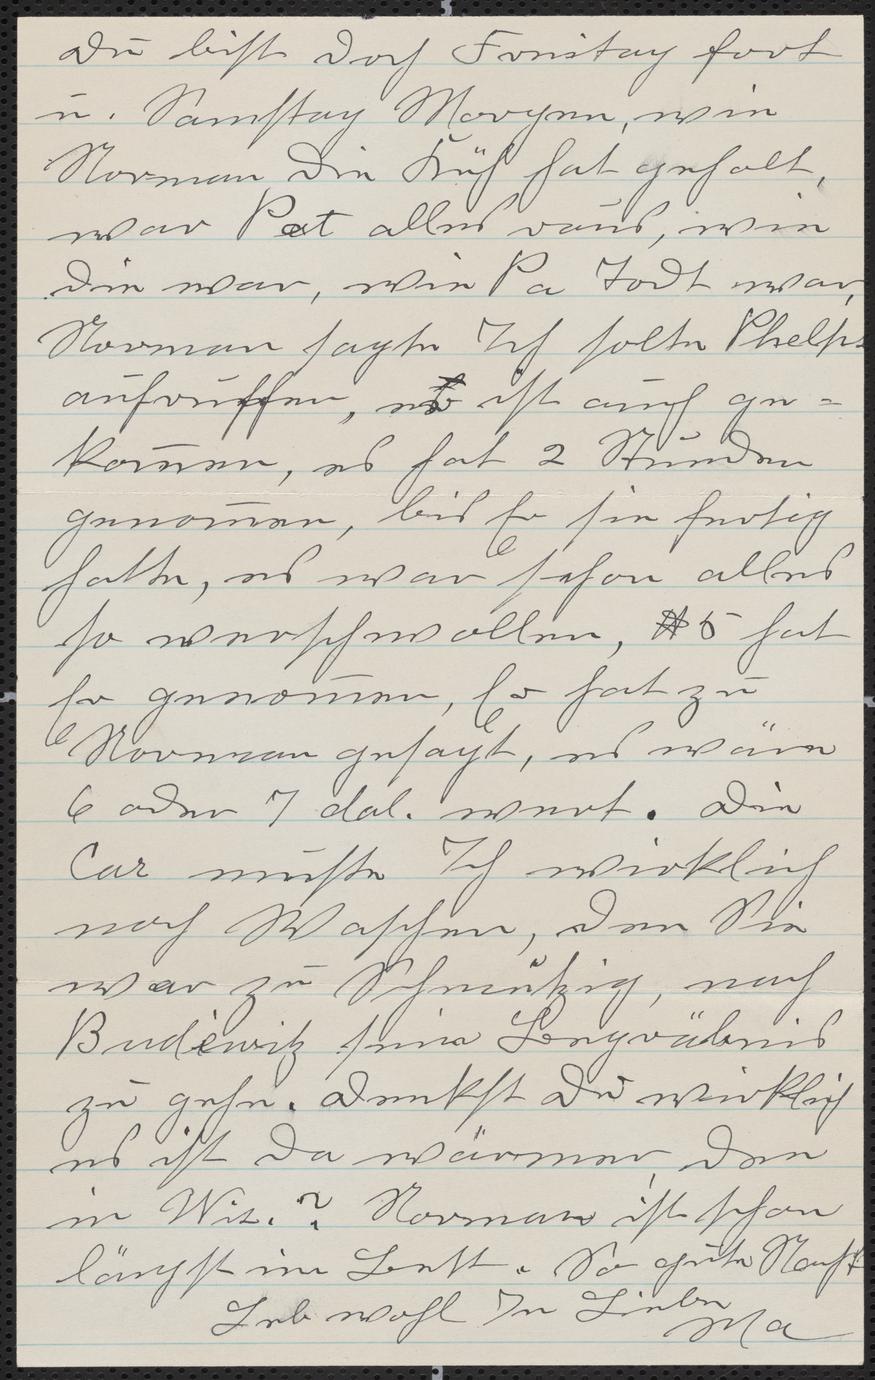 Du bist doch Freitag fort
u. Samstag Morgen, wie
Norman die Küh hat geholt,
war Pet alles raus, wie
die war, wie Pa Todt war,
Norman sagte Ich solte Phelps
aufruffen, er ist auch ge=
kom̄en, es hat 2 Stunden
genom̄en, bis Er sie fertig
hatte, es war schon alles
so verschwollen, $5 hat
Er genom̄en, Er hat zu
Norman gesagt, es wäre
6 oder 7 dol. wert. Die
Car muste Ich wirklich
noch Waschen, den Sie
war zu Schmutzig, nach
Budewitz seine Begräbnis
zu gehn. Denkst Du wirklich
es ist da wärmer, den
in Wis.? Norman ist schon
längst im Bett. So gute Nacht
Leb wohl In Liebe
Ma